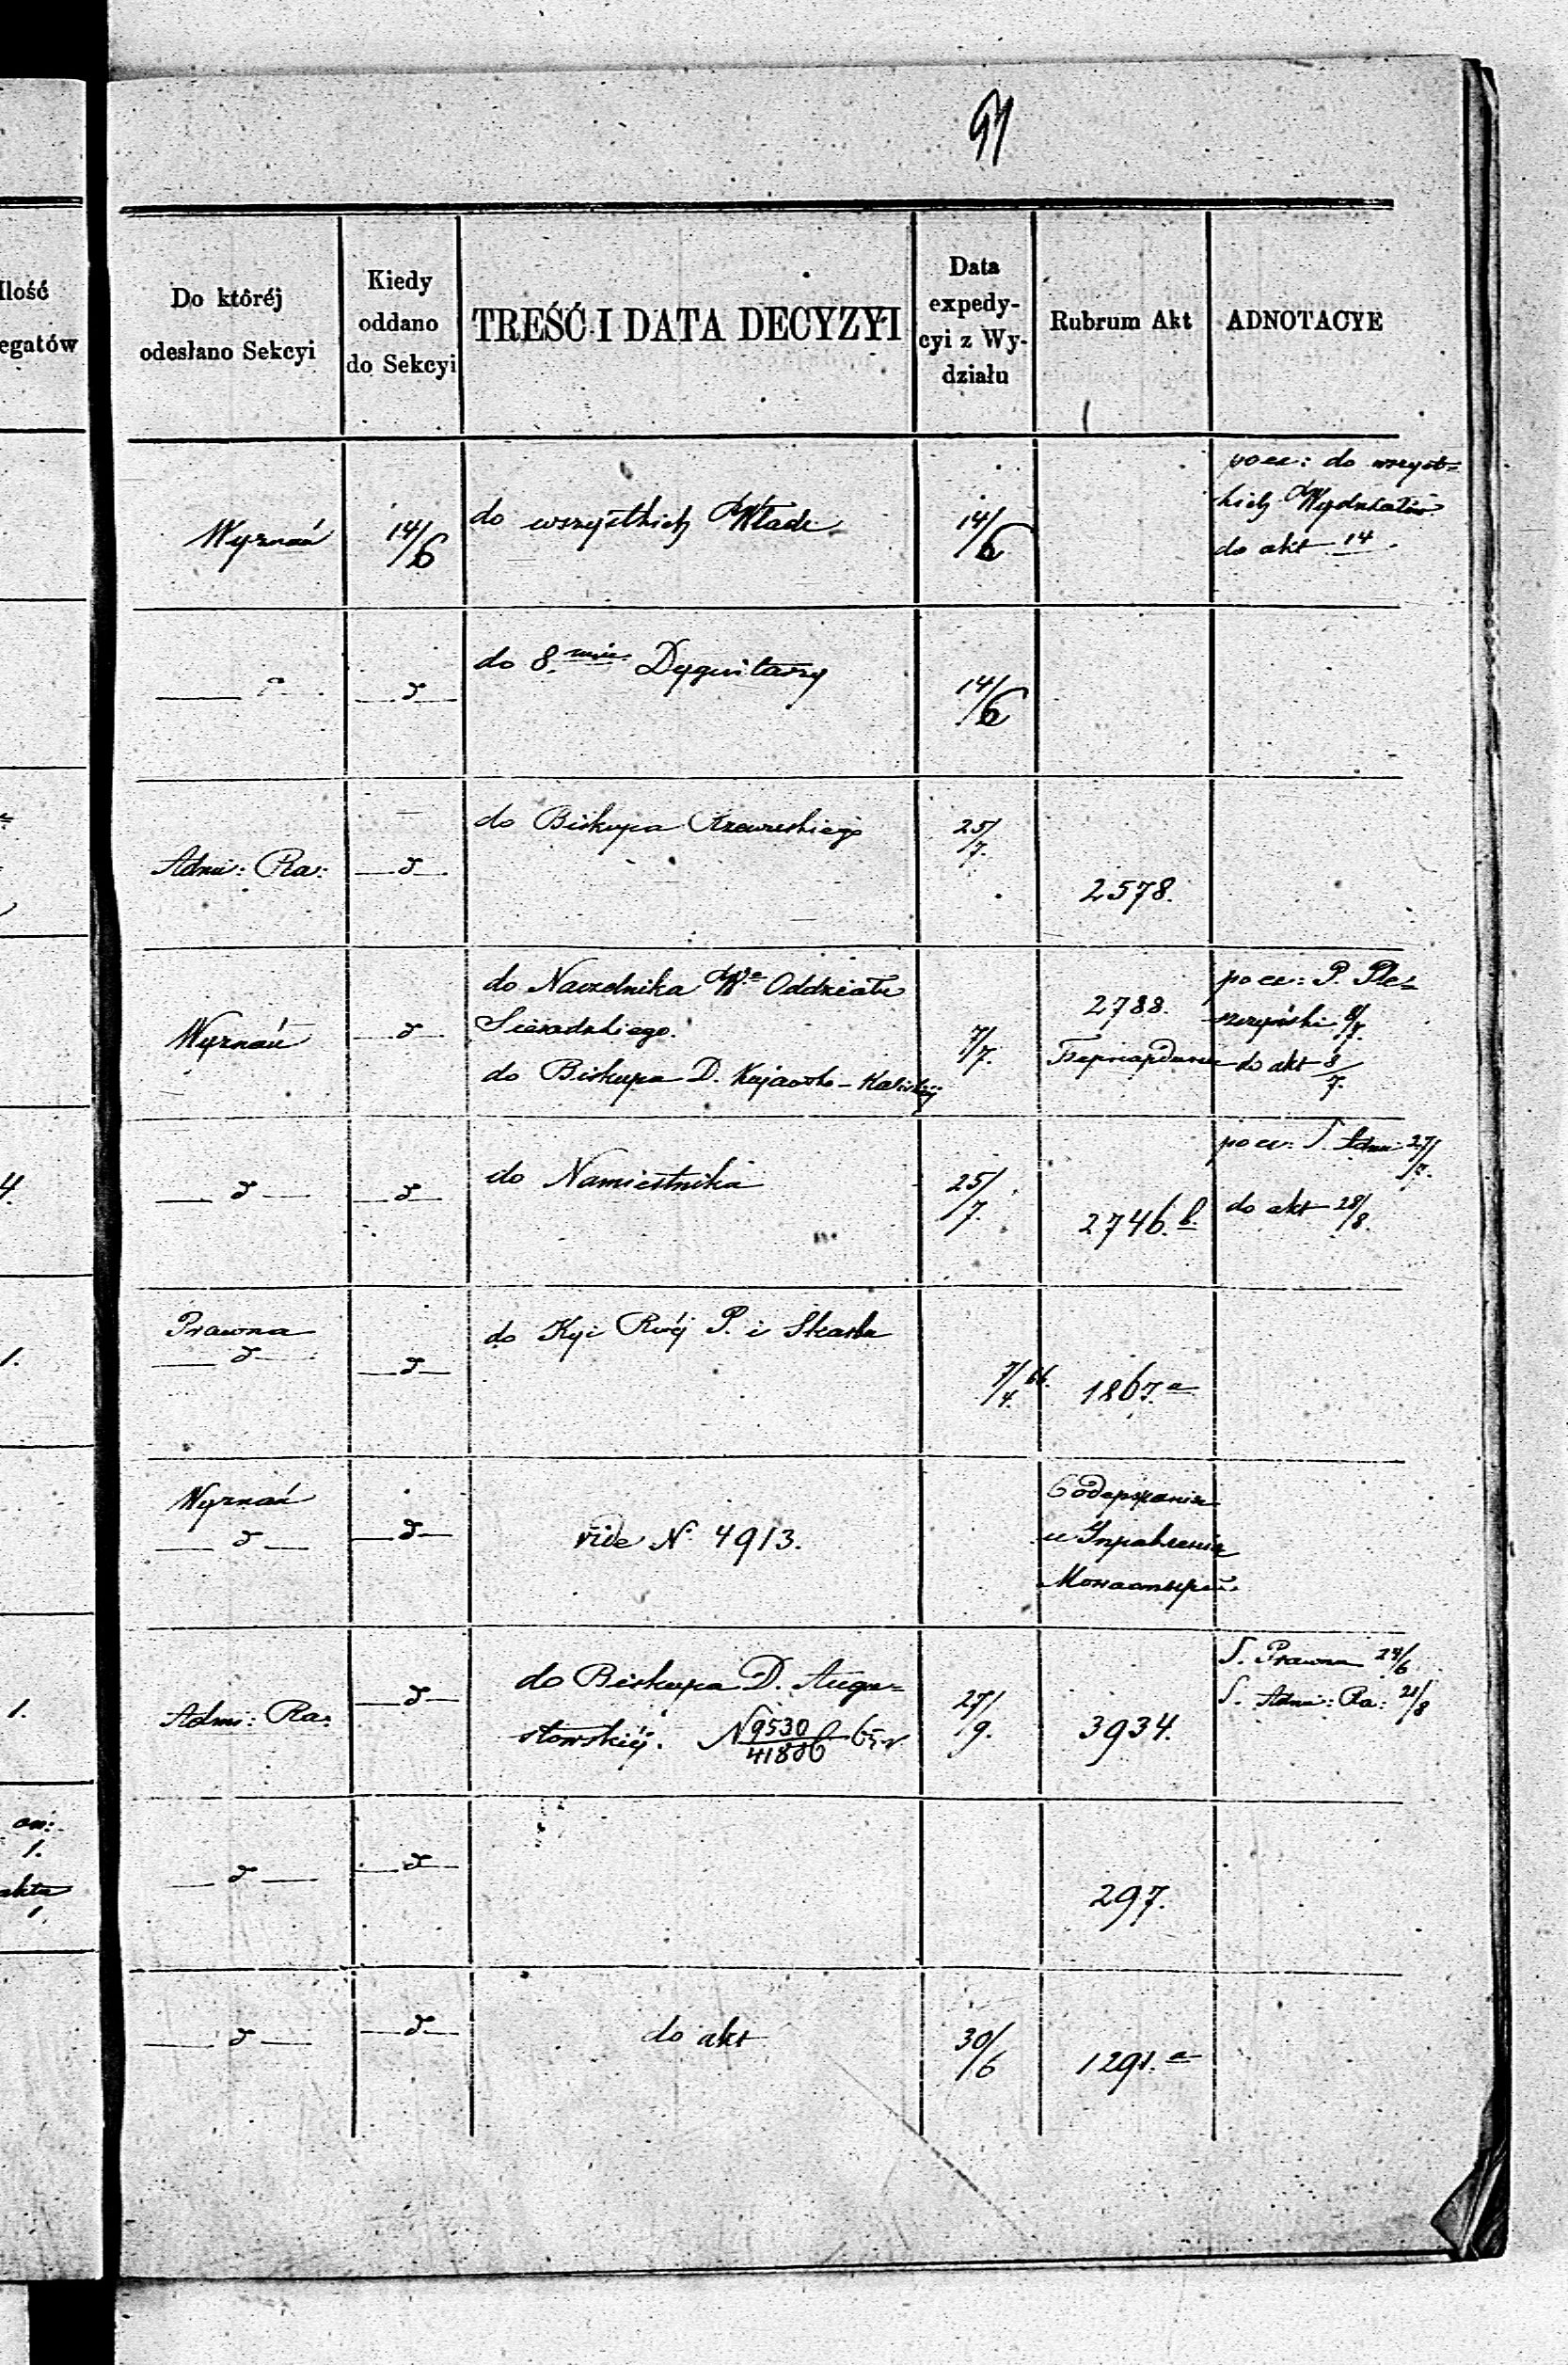 97
Ilość
egatów
Do któréj
odesłano Sekcyi
Kiedy
oddano
do Sekcyi
TREŚĆ I DATA DECYZYI
Data
expedy-
cyi z Wy-
działu
Rubrum Akt
ADNOTACYE
Wyznań
14/6
do wszystkich Władz
14/6
do wszyst=
kich Wydziałów
do akt 14
d
do 8. miu Dygnitarzy
14/6
Admi: Ra:
d
do Biskupa
25/7.
2578.
Wyznań
d
do Naczelnika Wo Oddziału
Sieradzkiego.
do Biskupa D. Kujawsko-Kaliskiej
7/7.
2788.
P. Ple=
szczyński 8/7.
do akt 8/7.
d
d
do Namiestnika
25/7.
2746.b.
do akt 28/8.
Prawna
d
d
do Kyi Rzój P. i Skarbu
7/4. 66.
1867.a
Wyznań
d
d
vide N. 4913.
Содержания
и Управления
Монастырей
Admi: Ra:
d
do Biskupa D. Augu=
stowskiéj. N 9530/41806
27/9.
3934.
S. Prawna 24/6
S. Adm: Ra: 21/8
d
d
297.
d
d
do akt
30/6
1291.a
4.
1.
1.
1.
akta
1.